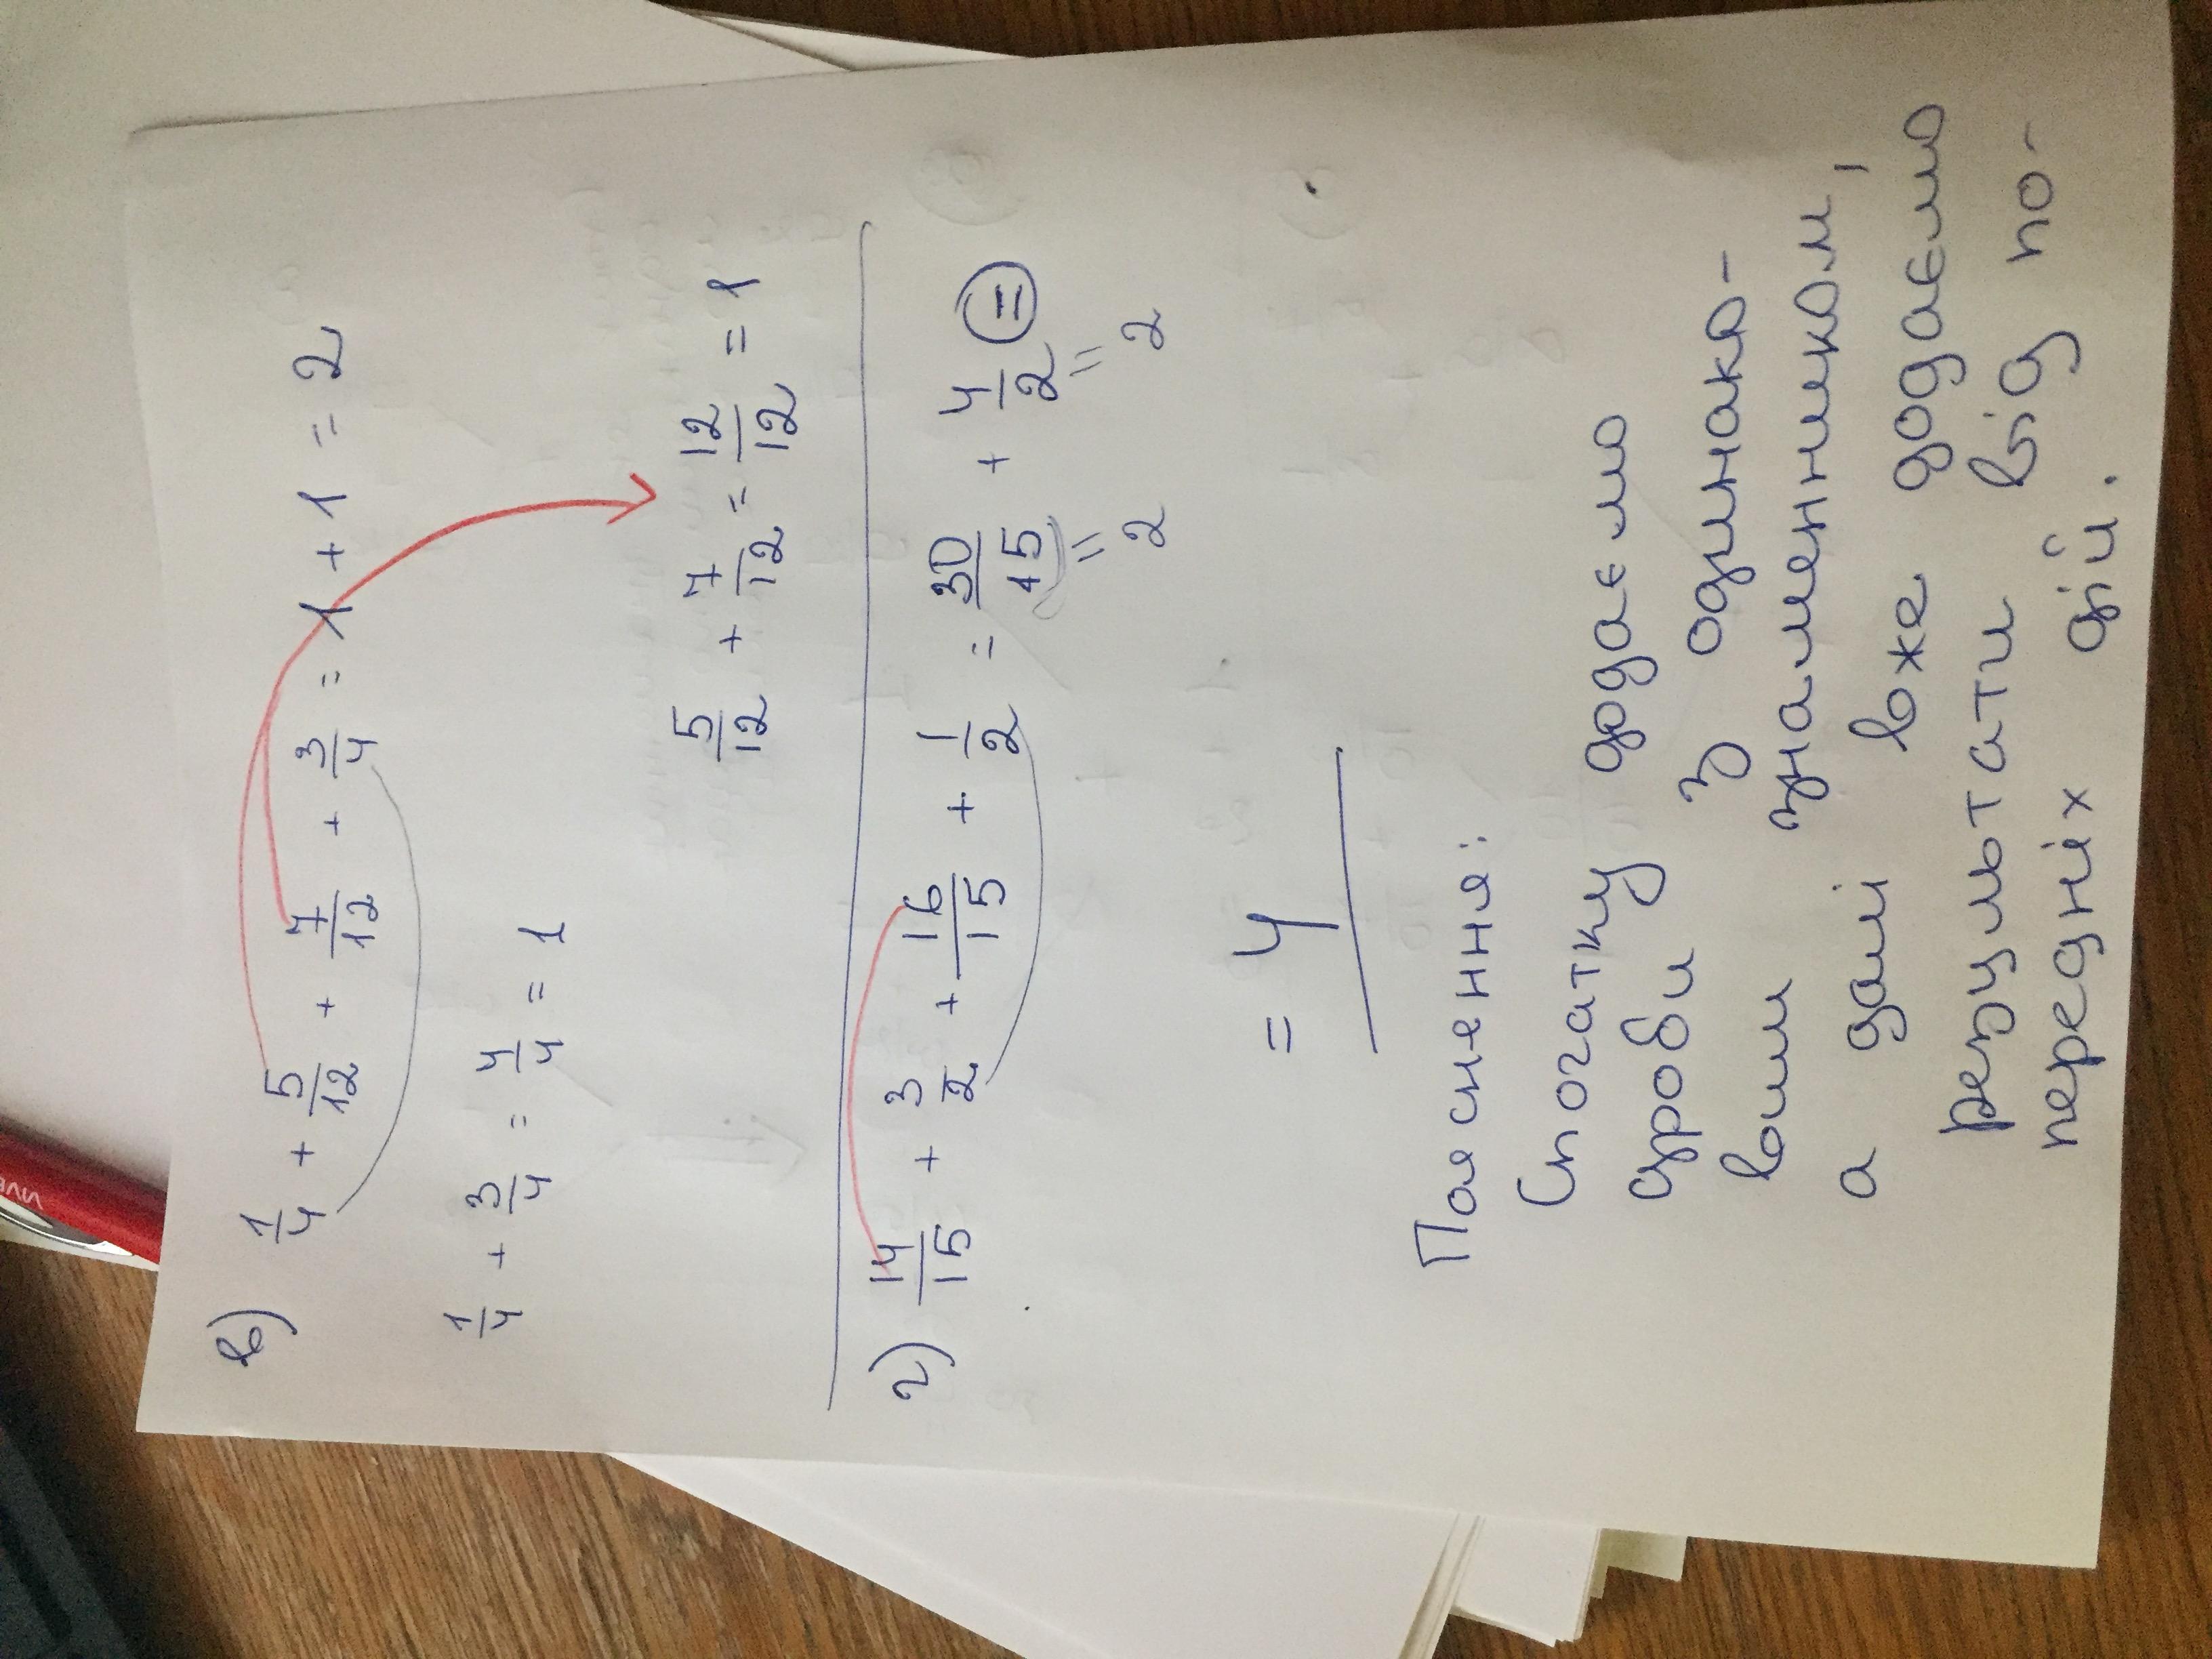 в) 1/4 + 5/12 + 7/12 + 3/4 = 1 + 1 = 2
1/4 + 3/4 = 4/4 = 1
5/12 + 7/12 = 12/12 = 1
г) 14/15 + 3/2 + 16/15 + 1/2 = 30/15 + 4/2 =
= 2 = 2
= 4
Пояснення:
Спочатку додаємо
дроби з однако-
вим знаменником,
а далі вже додаємо
результати від по-
передніх дій.